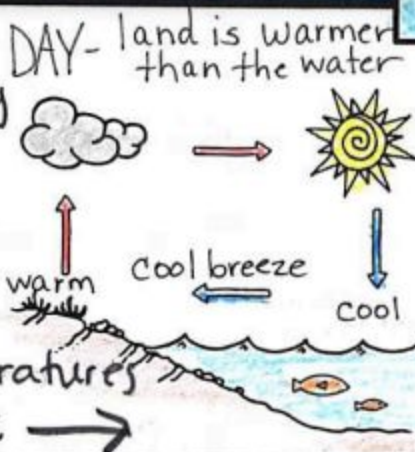 DAY- land is warmer
than the water
warm
cool breeze
cool
ratures